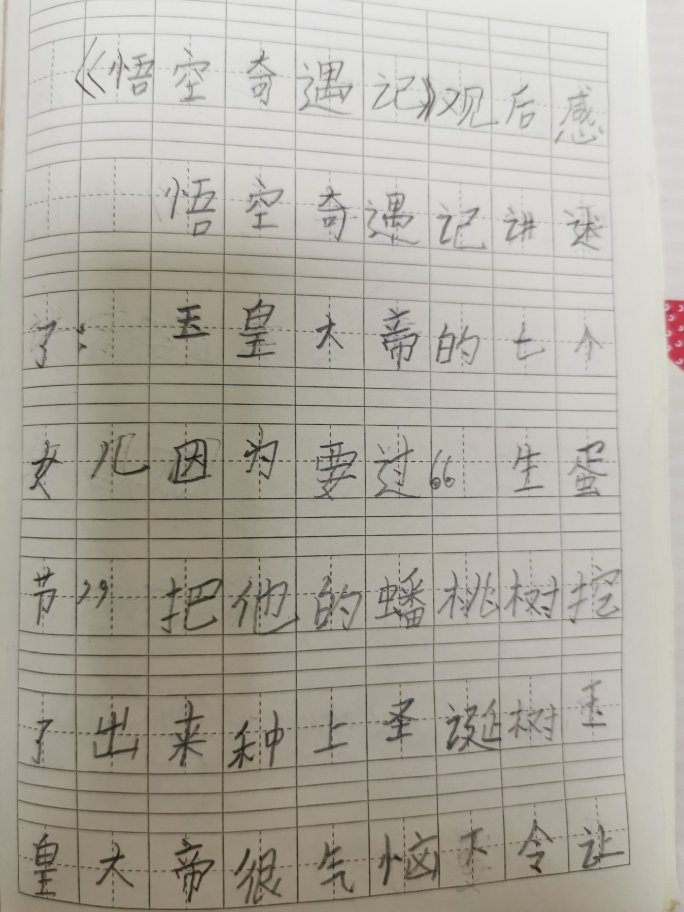 《悟空奇遇记》观后感
悟空奇遇记讲述
了：玉皇大帝的七个
女儿因为要过“生蛋
节”把他的蟠桃树挖
了出来种上圣诞树玉
皇大帝很气恼下令让